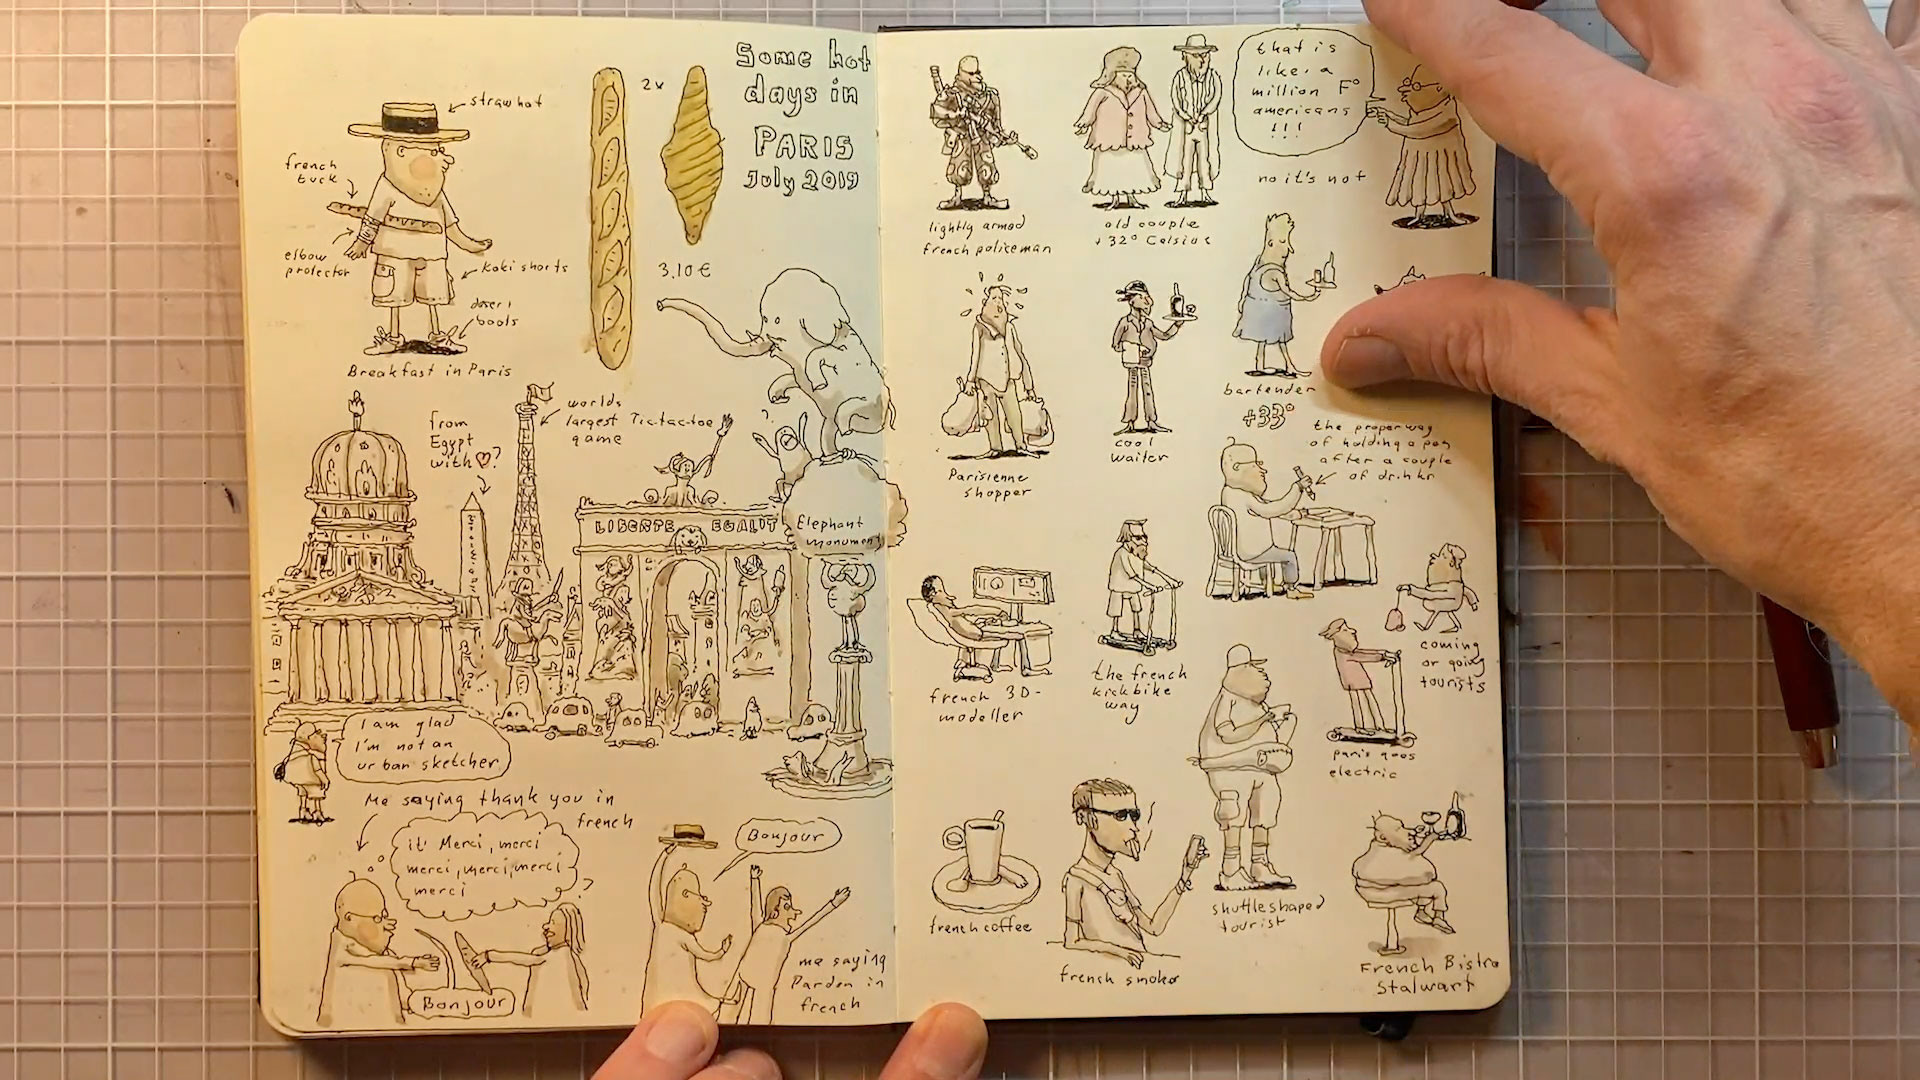 Some hot
days in
PARIS
July 2019
strawhat
french
tuck
elbow
protector
koki shorts
boots
Breakfast in Paris
2x
3.10 €
from
Egypt
with ♡?
worlds
largest Tic-tac-toe
game
LIBERTE EGALIT
Elephant
monument
?
I am glad
I'm not an
urban sketcher
Me saying thank you in
french
it' Merci, merci
merci, merci, merci
merci
?
Bonjour
Bonjour
me saying
Pardon in
french
lightly armed
french policeman
old couple
+32° Celsius
that is
like, a
million F°
americans
!!!
no it's not
Parisienne
shopper
cool
waiter
bartender
+33°
the proper way
of holding a pen
after a couple
of drinks
french 3D-
modeller
the french
kickbike
way
coming
or going
tourists
paris goes
electric
french coffee
french smoker
shuttleshaped
tourist
French Bistro
Stalwart